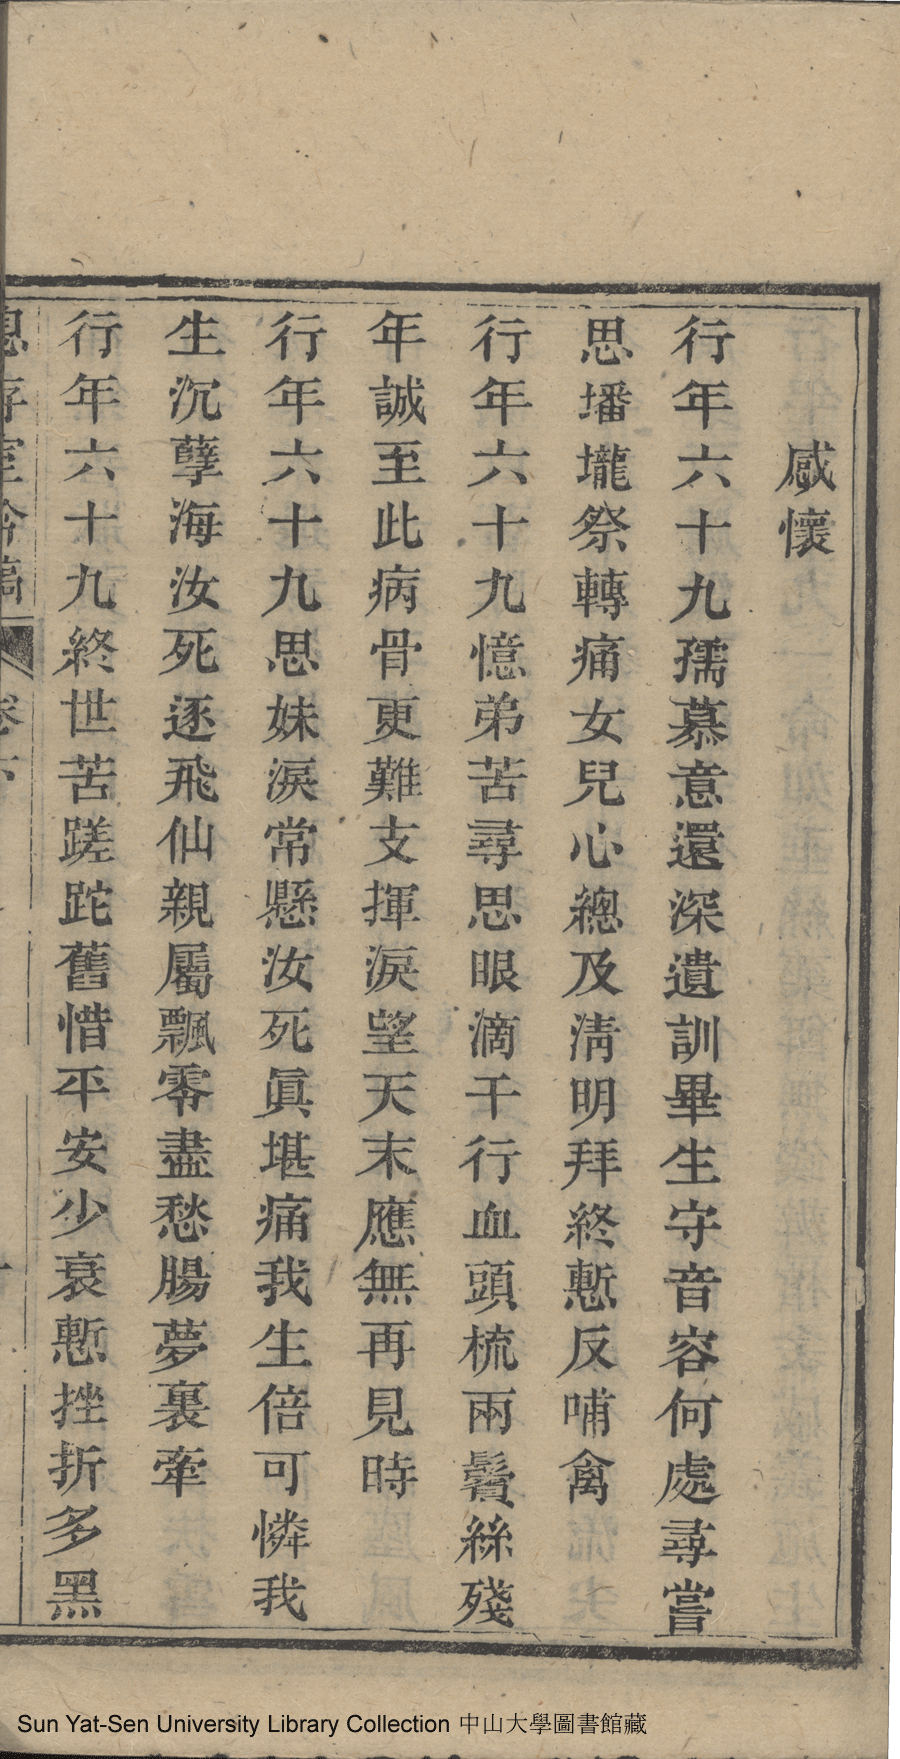 感懷
行年六十九孺慕意還深遺訓畢生守音容何處尋嘗
思墦壠祭轉痛女兒心總及淸明拜終慙反哺禽
行年六十九憶弟苦尋思眼滴千行血頭梳兩鬢絲殘
年誠至此病骨更難支揮淚望天末應無再見時
行年六十九思妹淚常懸汝死眞堪痛我生倍可憐我
生沉孽海汝死逐飛仙親屬飄零盡愁腸夢裏牽
行年六十九終世苦蹉跎舊惜平安少衰慙挫折多黑
Sun Yat-Sen University Library Collection 中山大學圖書館藏